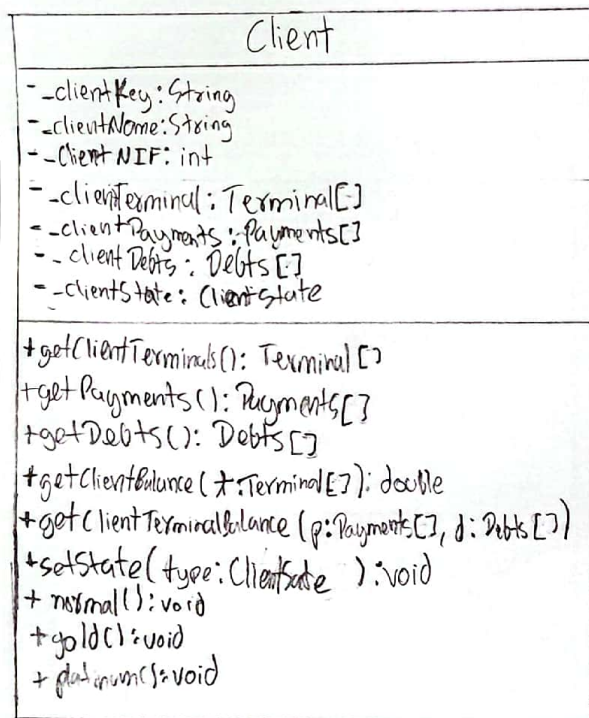 Client
- _clientKey: String
- _clientNome: String
- _ClientNIF: int
- _clienTerminal: Terminal[]
- _clientPayments: Payments[]
- _clientDebts: Debts[]
- _clientState: ClientState
+getClientTerminals(): Terminal[]
+getPayments(): Payments[]
+getDebts(): Debts[]
+getClientBalance(t:Terminal[]): double
+getClientTerminalBalance(p:Payments[], d:Debts[])
+setState(type:ClientSate ):void
+ normal():void
+gold():void
+ platinum():void